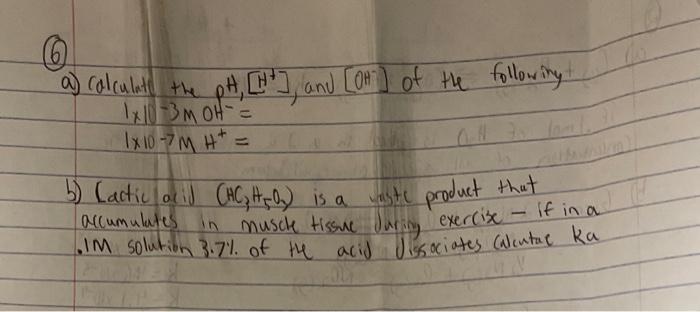 6
a) Calculate the pH, [H⁺], and [OH⁻] of the following
1x10-3M OH⁻ =
1x10-7M H⁺ =
b) Lactic acid (HC₃H₅O₃) is a waste product that
accumulates in muscle tissue during exercise – if in a
.1M solution 3.7% of the acid dissociates Calcutae ka